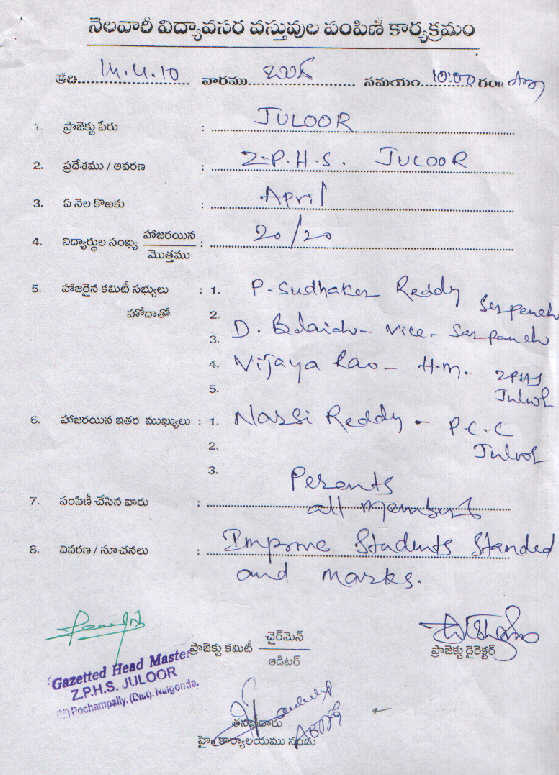 నెలవారీ విద్యావసర వస్తువుల పంపిణీ కార్యక్రమం
తేది. 14.4.10 వారము బుధ సమయం. 10.00 గం॥
1. ప్రాజెక్టు పేరు : JULOOR
2. ప్రదేశము / ఆవరణ : Z.P.H.S. JULOOR
3. ఏ నెల కొఱకు : April
4. విద్యార్థుల సంఖ్య హాజరయిన / మొత్తము : 20/20
5. హాజరైన కమిటీ సభ్యులు : 1. P. Sudhaker Reddy Serpanch
హోదాతో 2.
3. D. Balaiah - Vice - Serpanch
4. Vijaya Rao - H.M. ZPHS
5. Juloor
6. హాజరయిన ఇతర ముఖ్యులు : 1. Narsi Reddy - P.C.C
2. Juloor
3.
7. పంపిణీ చేసిన వారు : Perents
all Members
8. వివరణ / సూచనలు : Improve Students Standed
and marks.
ప్రాజెక్టు కమిటీ ఛైర్మెన్ / ఆడిటర్
ప్రాజెక్టు డైరెక్టర్
Gazetted Head Master
Z.P.H.S. JULOOR
(M) Pochampally, (Dist). Nalgonda.